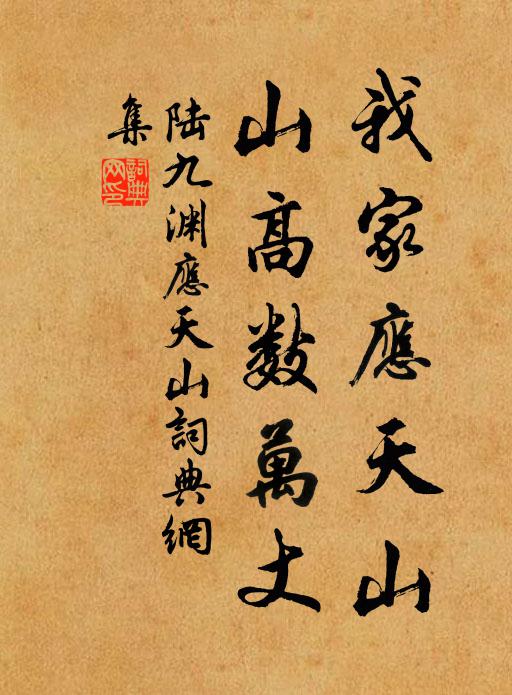 我家應天山
山高数萬丈
陸九渊應天山詞典網
集
詞典
网印